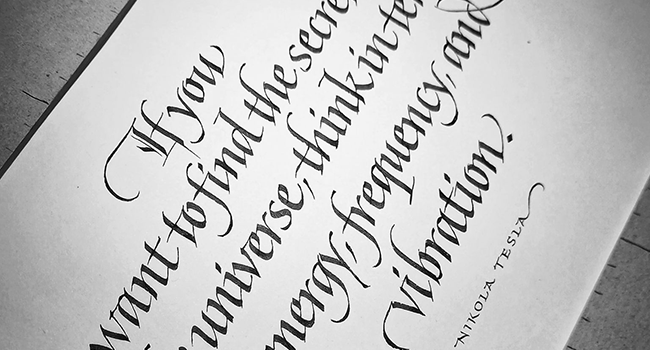 If you
want to find the secre
universe, think in te
nergy, frequency, and
vibration.
NIKOLA TESLA